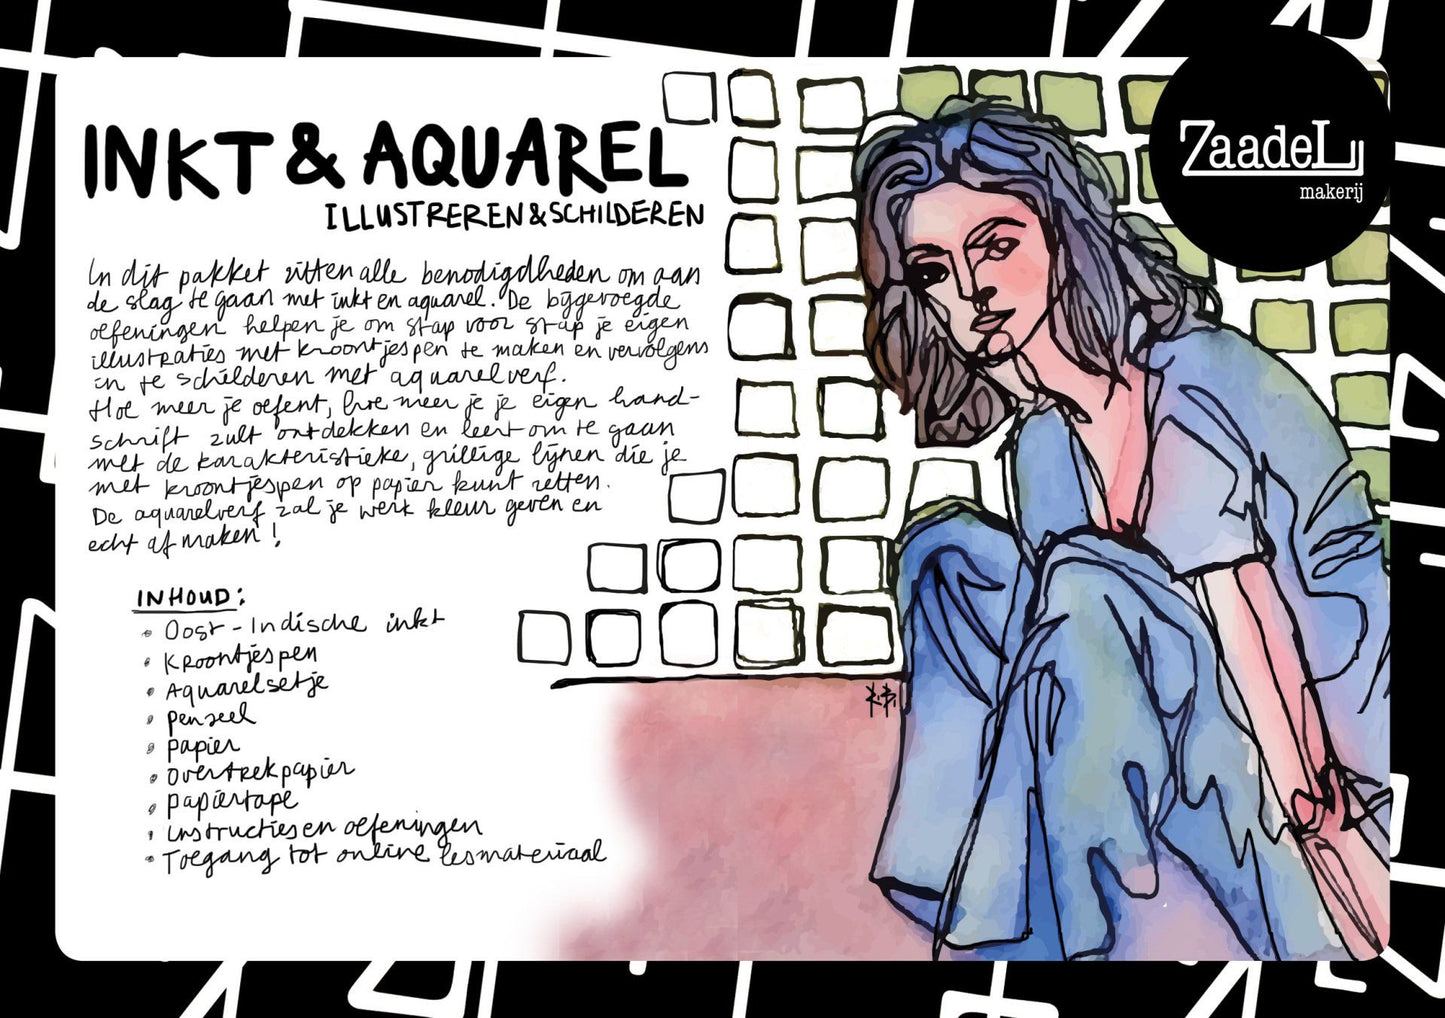 INKT & AQUAREL
ILLUSTREREN & SCHILDEREN
ZaadeL
makerij
In dit pakket zitten alle benodigdheden om aan
de slag te gaan met inkt en aquarel. De bijgevoegde
oefeningen helpen je om stap voor stap je eigen
illustraties met kroontjespen te maken en vervolgens
in te schilderen met aquarelverf.
Hoe meer je oefent, hoe meer je je eigen hand-
schrift zult ontdekken en leert om te gaan
met de karakteristieke, grillige lijnen die je
met kroontjespen op papier kunt zetten.
De aquarelverf zal je werk kleur geven en
echt af maken!
INHOUD:
• Oost-Indische inkt
• Kroontjespen
• Aquarelsetje
• penseel
• papier
• overtrekpapier
• papiertape
• Instructies en oefeningen
• Toegang tot online lesmateriaal